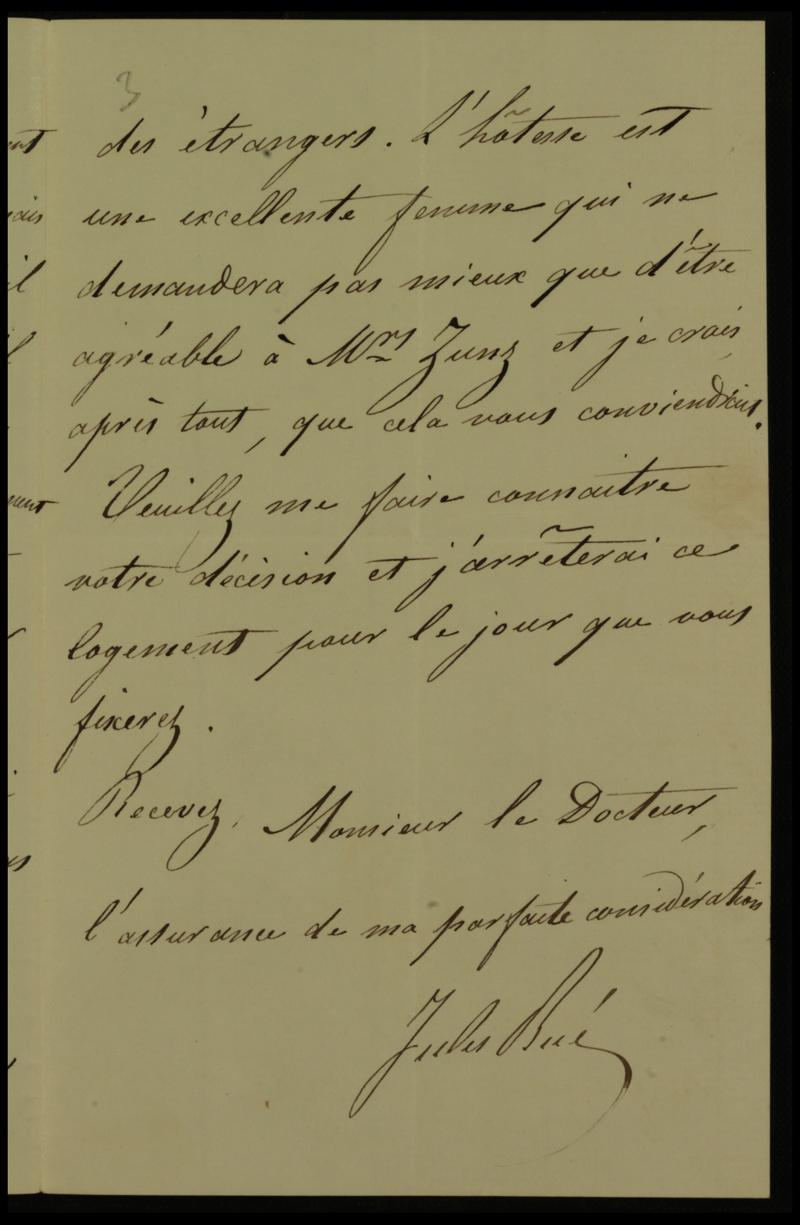 3
des étrangers. L'hôtesse est
une excellente femme qui ne
demandera pas mieux que d'être
agréable à Mrs Zunz et je crois,
après tout, que cela vous conviendrait.
Veuillez me faire connaitre
votre décision et j'arrêterai ce
logement pour le jour que vous
fixerez.
Recevez, Monsieur le Docteur,
l'assurance de ma parfaite considération
Jules Bué